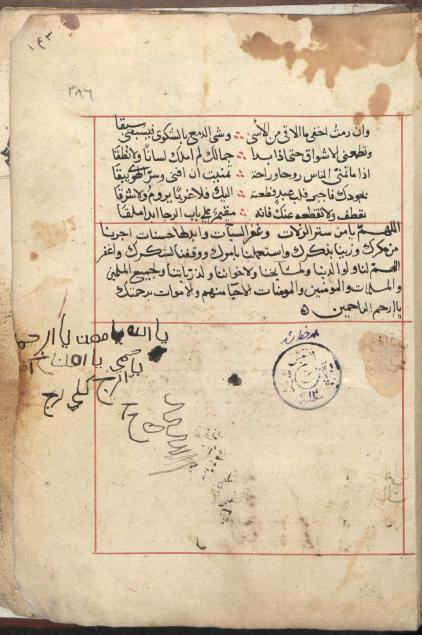 ١٤٣
٢٨٦
وان رمت اخفي ما الاقي من الأسى ؞ وشى الدمع بالشكوى فيسبقني سبقا
وتقطعني الاشواق حتى اذا بدا ؞ جمالك لم املك لسانا ولا نطقا
اذا ما تمنى الناس روحا وراحة ؞ تمنيت ان افنى وسر الهوى يبقا
بجودك فاجبر قلب عبد قطعته ؞ اليك فلا غربا يروم ولا شرقا
تعطف ولا تقطعه عنك فانه ؞ مقيم على باب الرجا ابدا ملقا
اللهم يا من ستر الزلات وغفر السيآت وابدلها حسنات اجرنا
من مكرك وزينا بذكرك واستعملنا بامرك ووفقنا لشكرك واغفر
اللهم لنا ولوالدينا ولمشايخنا ولاخواننا ولذرياتنا ولجميع المسلمين
والمسلمات والمؤمنين والمؤمنات الاحياء منهم والاموات برحمتك
يا ارحم الراحمين
يا الله يا